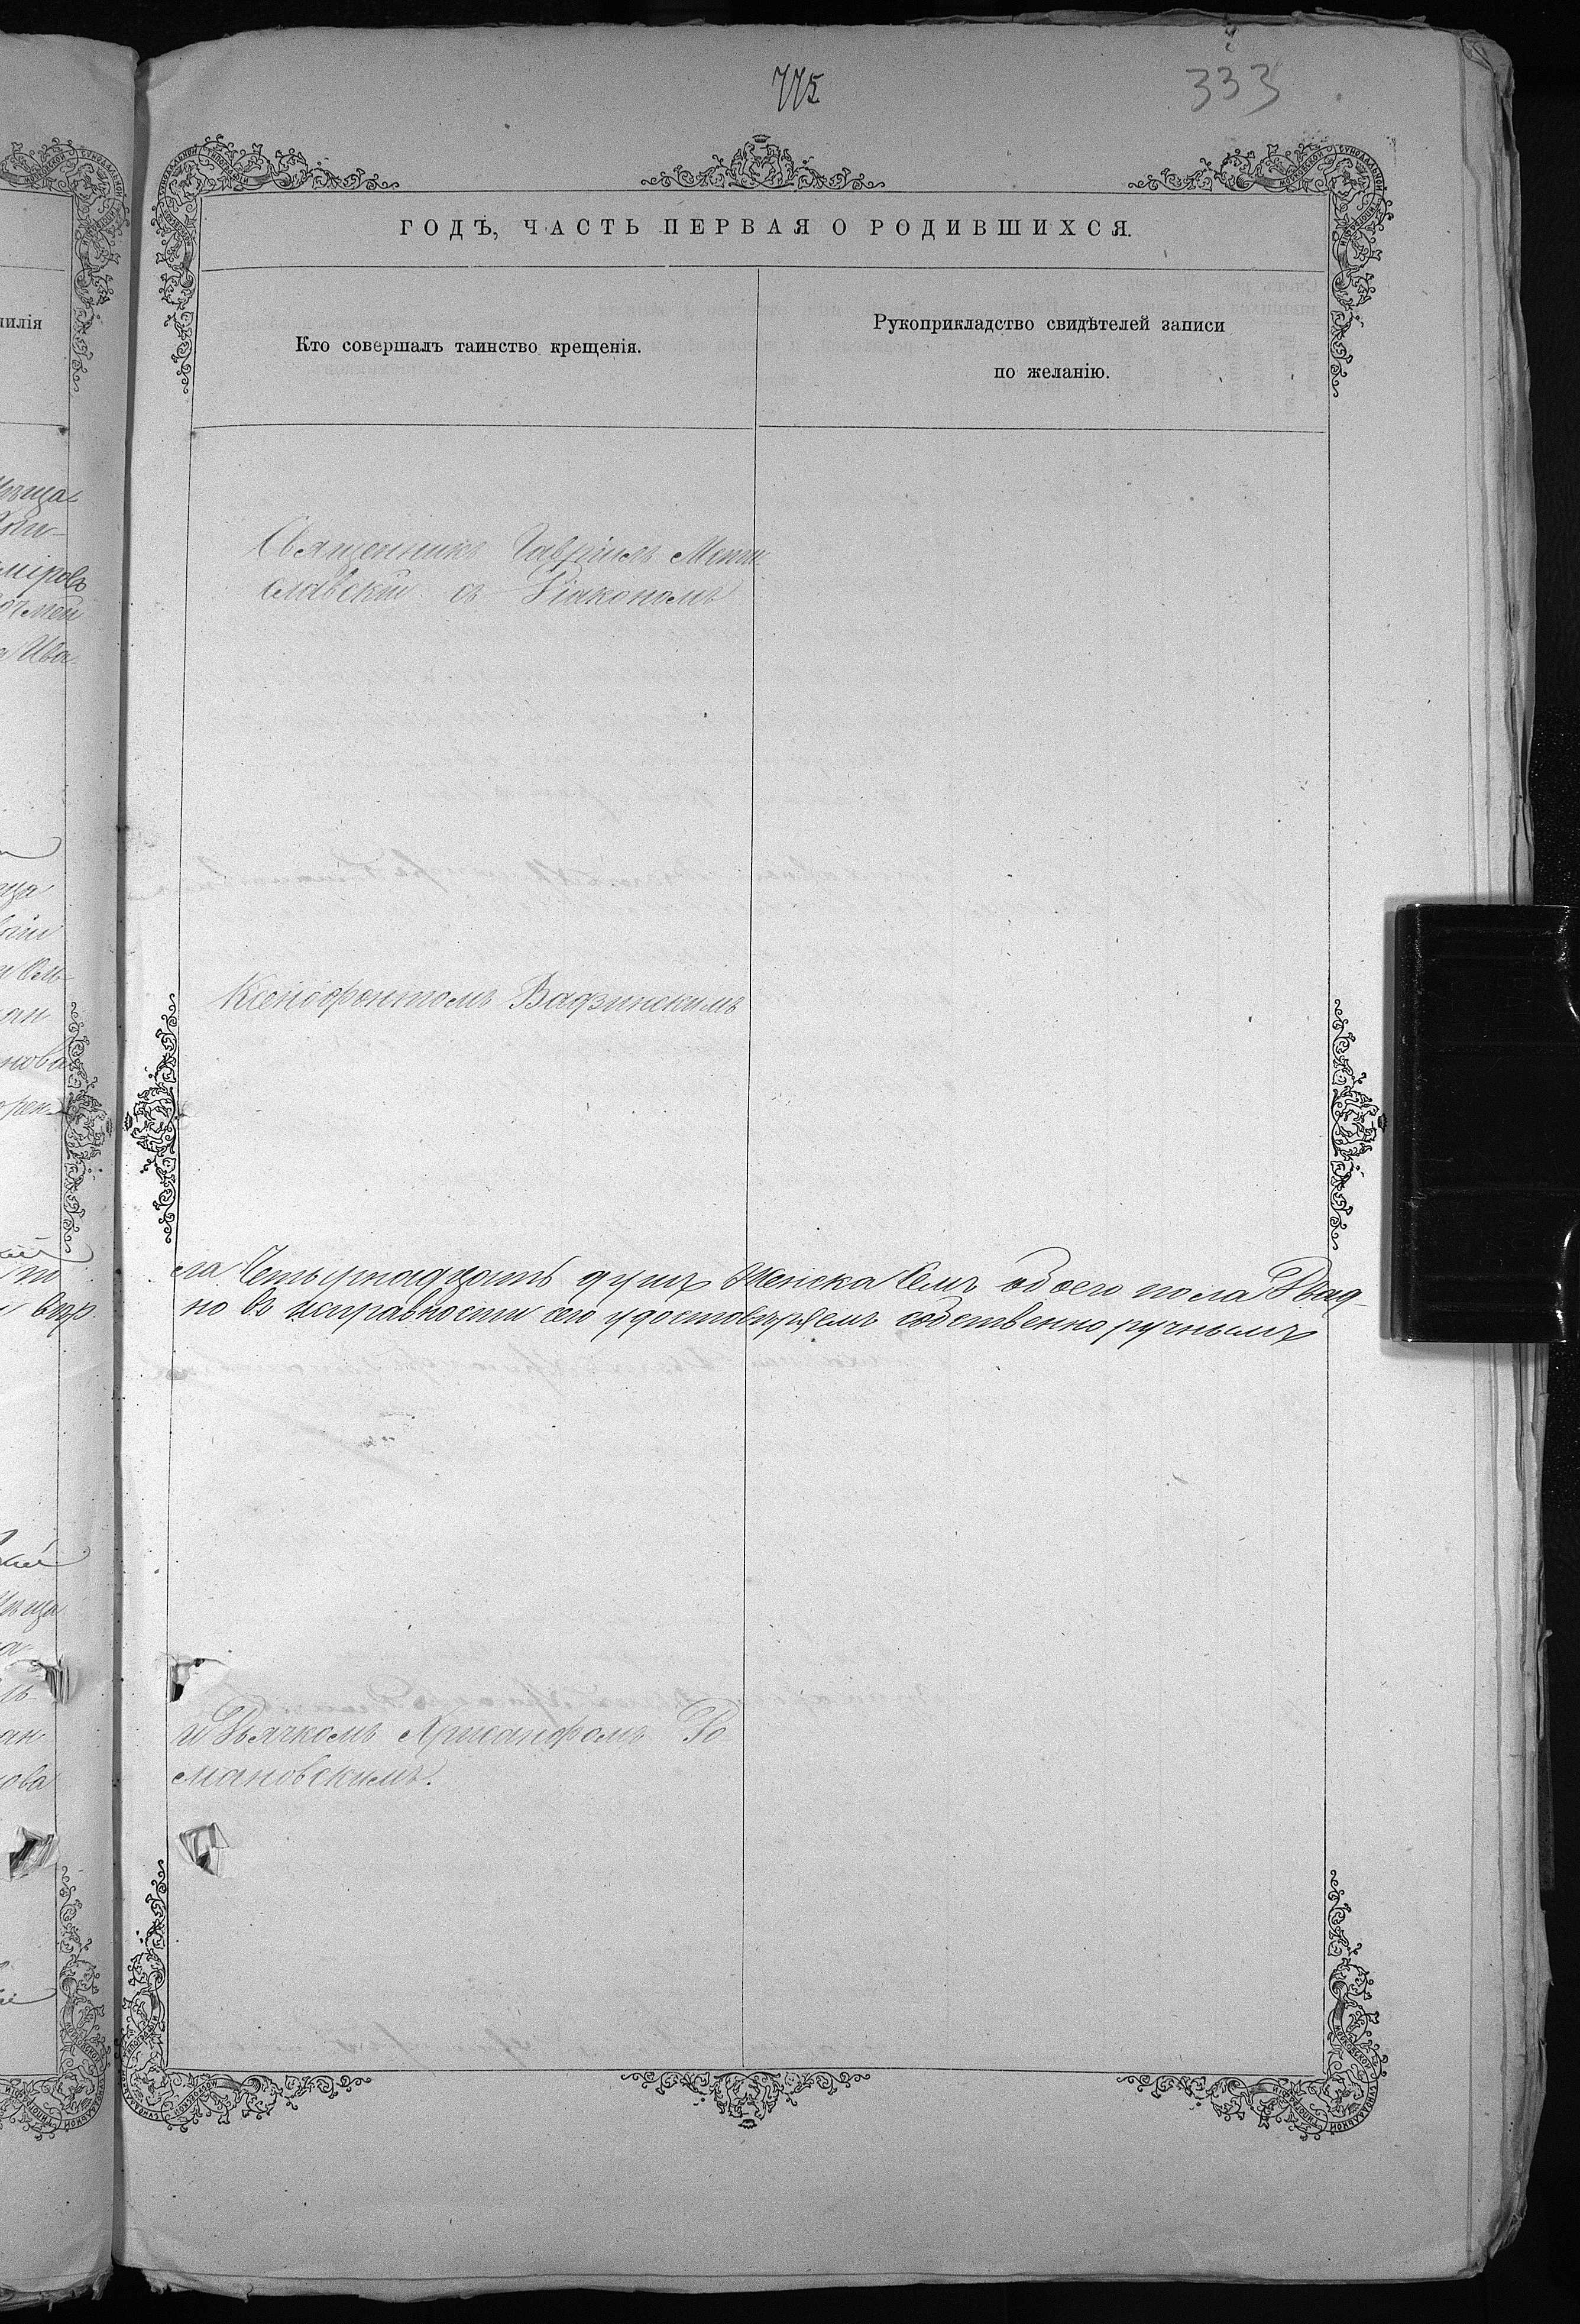 775
333
ГОДЪ, ЧАСТЬ ПЕРВАЯ О РОДИВШИХСЯ.
Кто совершалъ таинство крещенія.
Рукоприкладство свидѣтелей записи
по желанію.
Священникъ Гавріилъ Мсти
славскій съ Діакономъ
Ксенофонтомъ
ла Четырнадцать душъ Женска Семь обоего пола Двад-
но въ исправности сего удостовѣряемъ собственноручнымъ
и Дьячкомъ Хрисанфомъ Ро
мановскимъ.